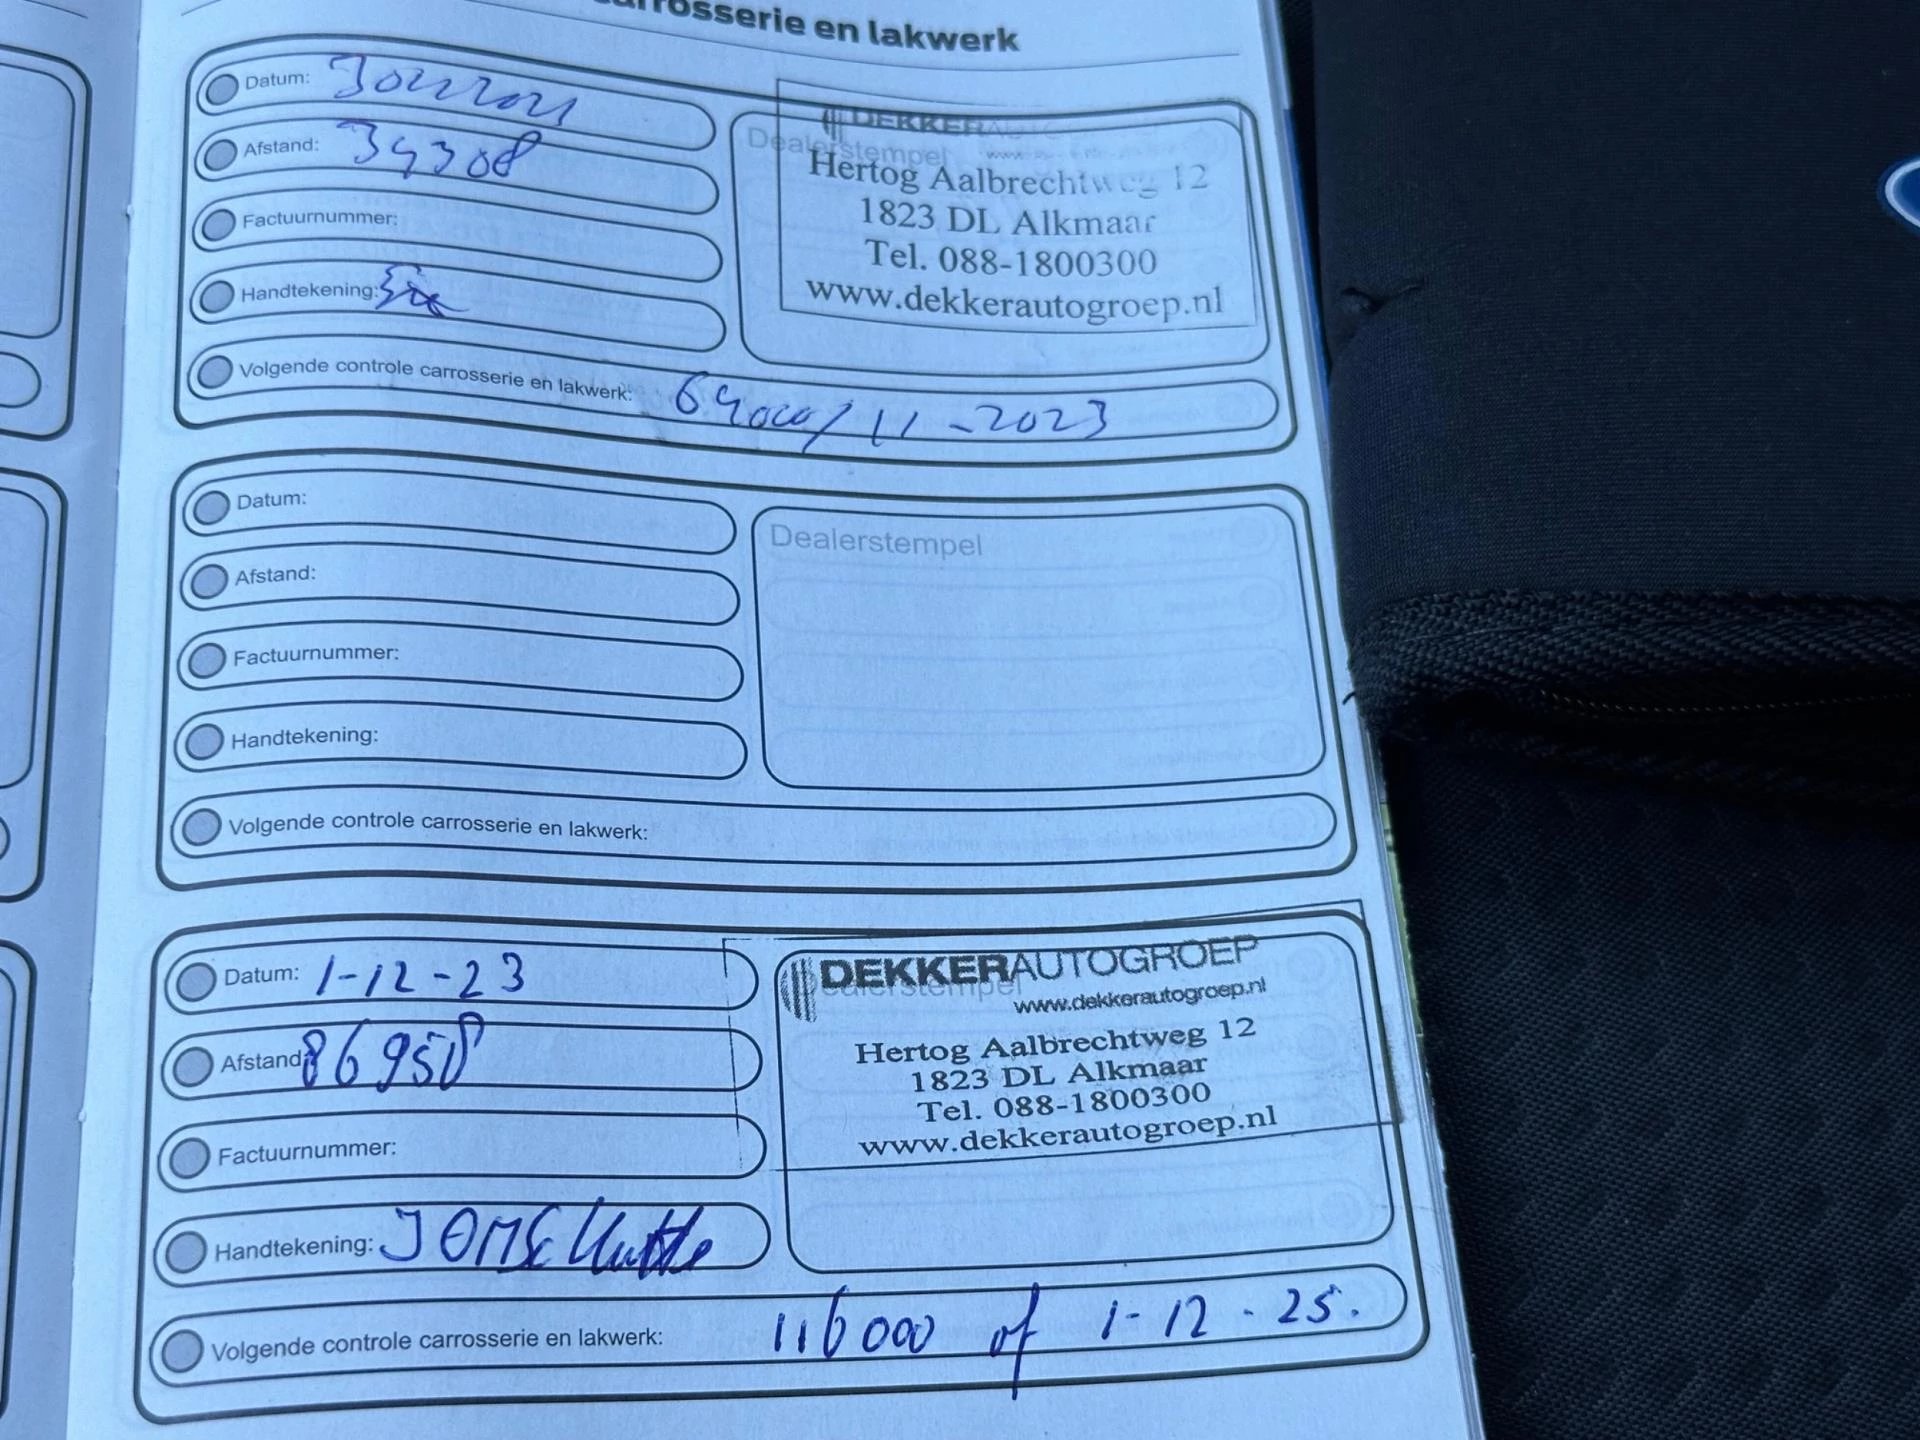 carrosserie en lakwerk
Datum:
Afstand: 34308
Factuurnummer:
Handtekening:
Volgende controle carrosserie en lakwerk: 64000/11-2023
Dealerstempel
DEKKERAUTOGROEP
Hertog Aalbrechtweg 12
1823 DL Alkmaar
Tel. 088-1800300
www.dekkerautogroep.nl
Datum:
Afstand:
Factuurnummer:
Handtekening:
Volgende controle carrosserie en lakwerk:
Dealerstempel
Datum: 1-12-23
Afstand: 86958
Factuurnummer:
Handtekening:
Volgende controle carrosserie en lakwerk: 116000 of 1-12-25.
Dealerstempel
DEKKERAUTOGROEP
www.dekkerautogroep.nl
Hertog Aalbrechtweg 12
1823 DL Alkmaar
Tel. 088-1800300
www.dekkerautogroep.nl